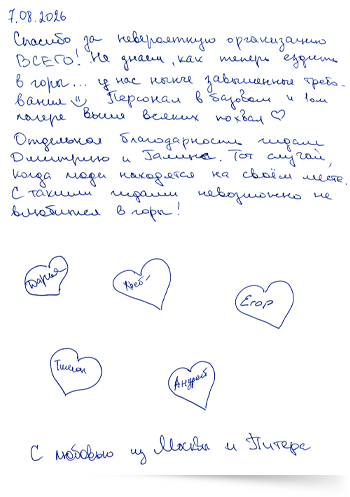 7.08.2026
Спасибо за невероятную организацию
ВСЕГО! Не знаем, как теперь ездить
в горы... у нас ныне завышенные требо-
вания Персонал в базовом и 1ом
лагере выше всяких похвал ♡
Отдельная благодарность гидам
Дмитрию и Галине. Тот случай,
когда люди находятся на своём месте.
С такими гидами невозможно не
влюбиться в горы!
Дарья
Глеб
Егор
Тимон
Андрей
С любовью из Москвы и Питера